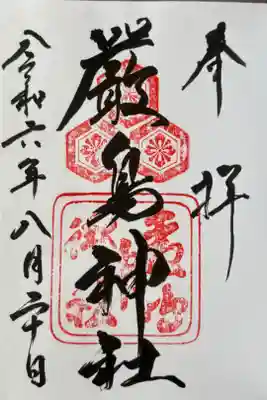 奉拝
嚴島神社
令和六年八月二十日